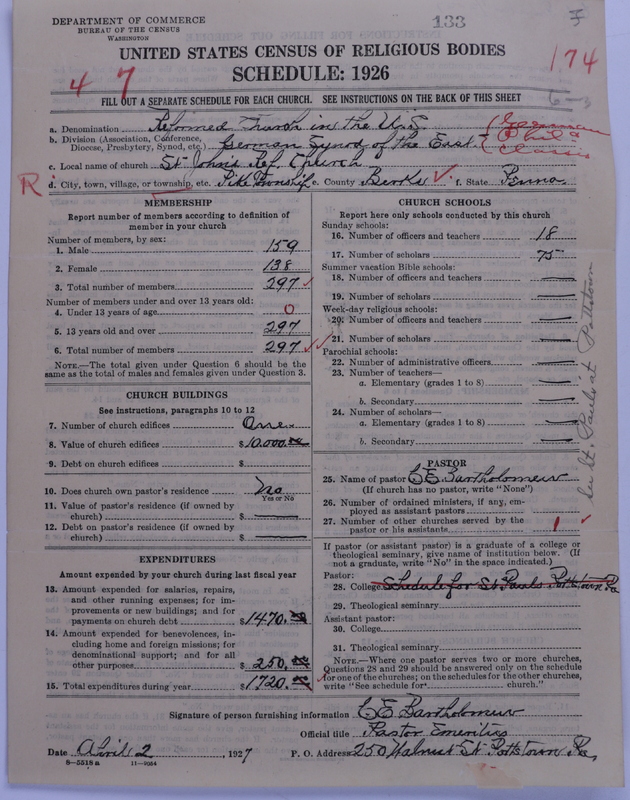 DEPARTMENT OF COMMERCE
BUREAU OF THE CENSUS
WASHINGTON
133
UNITED STATES CENSUS OF RELIGIOUS BODIES
SCHEDULE: 1926
174
4 7
FILL OUT A SEPARATE SCHEDULE FOR EACH CHURCH. SEE INSTRUCTIONS ON THE BACK OF THIS SHEET
a. Denomination Reformed Church in the U.S.
b. Division (Association, Conference, Diocese, Presbytery, Synod, etc.) German Synod of the East
(German Phila Classis
c. Local name of church St John's Ref. Church
R
d. City, town, village, or township, etc. Pike Township e. County Berks f. State Penna.
MEMBERSHIP
Report number of members according to definition of
member in your church
Number of members, by sex:
1. Male 159
2. Female 138
3. Total number of members 297
Number of members under and over 13 years old:
4. Under 13 years of age 0
5. 13 years old and over 297
6. Total number of members 297
NOTE.—The total given under Question 6 should be the
same as the total of males and females given under Question 3.
CHURCH BUILDINGS
See instructions, paragraphs 10 to 12
7. Number of church edifices One
8. Value of church edifices $10.000.00
9. Debt on church edifices $
10. Does church own pastor's residence No
Yes or No
11. Value of pastor's residence (if owned by
church) $
12. Debt on pastor's residence (if owned by
church) $
EXPENDITURES
Amount expended by your church during last fiscal year
13. Amount expended for salaries, repairs,
and other running expenses; for im-
provements or new buildings; and for
payments on church debt $1470.00
14. Amount expended for benevolences, in-
cluding home and foreign missions; for
denominational support; and for all
other purposes $250.00
15. Total expenditures during year $1720.00
CHURCH SCHOOLS
Report here only schools conducted by this church
Sunday schools:
16. Number of officers and teachers 18
17. Number of scholars 75
Summer vacation Bible schools:
18. Number of officers and teachers
19. Number of scholars
Week-day religious schools:
20. Number of officers and teachers
21. Number of scholars
Parochial schools:
22. Number of administrative officers
23. Number of teachers—
a. Elementary (grades 1 to 8)
b. Secondary
24. Number of scholars—
a. Elementary (grades 1 to 8)
b. Secondary
See St. Pauls at Pottstown
PASTOR
25. Name of pastor C E Bartholomew
(If church has no pastor, write "None")
26. Number of ordained ministers, if any, em-
ployed as assistant pastors
27. Number of other churches served by the
pastor or his assistants 1
If pastor (or assistant pastor) is a graduate of a college or
theological seminary, give name of institution below. (If
not a graduate, write "No" in the space indicated.)
Pastor:
28. College Schedule for St Pauls Pottstown Pa
29. Theological seminary
Assistant pastor:
30. College
31. Theological seminary
NOTE.—Where one pastor serves two or more churches,
Questions 28 and 29 should be answered only on the schedule
for one of the churches; on the schedules for the other churches,
write "See schedule for church."
Signature of person furnishing information C E Bartholomew
Official title Pastor Emeritus
Date April 2, 1927 P. O. Address 250 Walnut St Pottstown Pa.
8—5518 a 11—9054